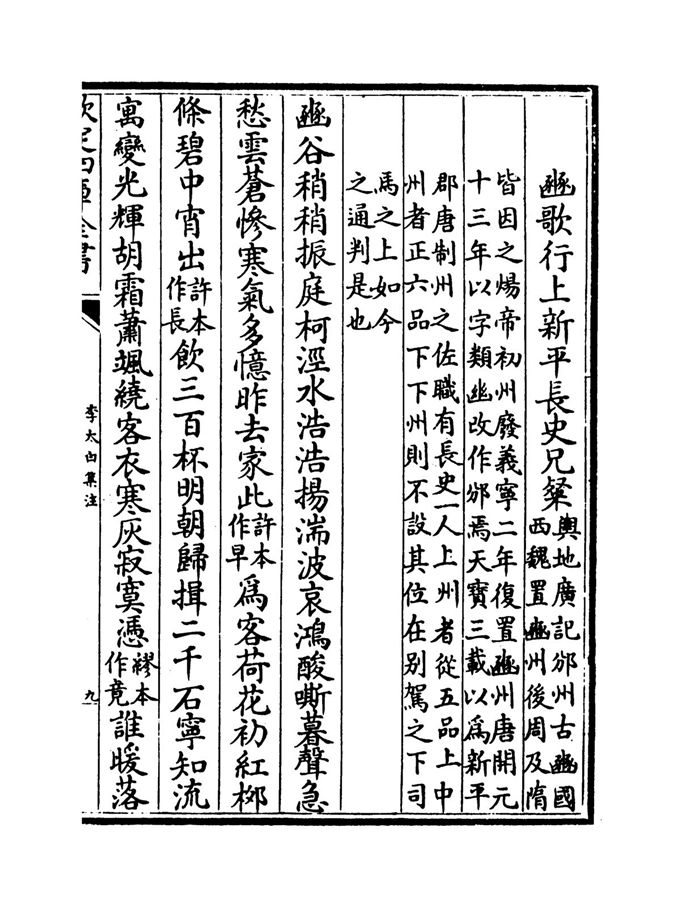 豳歌行上新平長史兄粲輿地廣記邠州古豳國
西魏置豳州後周及隋
皆因之煬帝初州廢義寧二年復置豳州唐開元
十三年以字類幽改作邠焉天寶三載以爲新平
郡唐制州之佐職有長史一人上州者從五品上中
州者正六品下下州則不設其位在别駕之下司
馬之上如今
之通判是也
豳谷稍稍振庭柯涇水浩浩揚湍波哀鴻酸嘶暮聲急
愁雲蒼慘寒氣多憶昨去家此許本作早爲客荷花初紅柳
條碧中宵出許本作長飲三百杯明朝歸揖二千石寧知流
寓變光輝胡霜蕭颯繞客衣寒灰寂寞憑繆本作竟誰暖落
欽定四庫全書
李太白集注
九